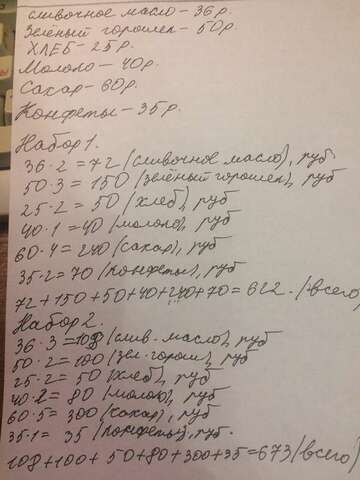 сливочное масло - 36 р.
Зелёный горошек - 50 р.
ХЛЕБ - 25 р.
Молоко - 40 р.
Сахар - 60 р.
Конфеты - 35 р.
Набор 1.
36·2=72 (сливочное масло), руб
50·3=150 (зелёный горошек), руб
25·2=50 (хлеб), руб
40·1=40 (молоко), руб
60·4=240 (сахар), руб
35·2=70 (конфеты), руб
72+150+50+40+240+70=622. (всего)
Набор 2.
36·3=108 (слив. масло), руб
50·2=100 (зел. горош), руб
25·2=50 (хлеб), руб
40·2=80 (молоко), руб
60·5=300 (сахар), руб
35·1=35 (конфеты), руб.
108+100+50+80+300+35=673 (всего)